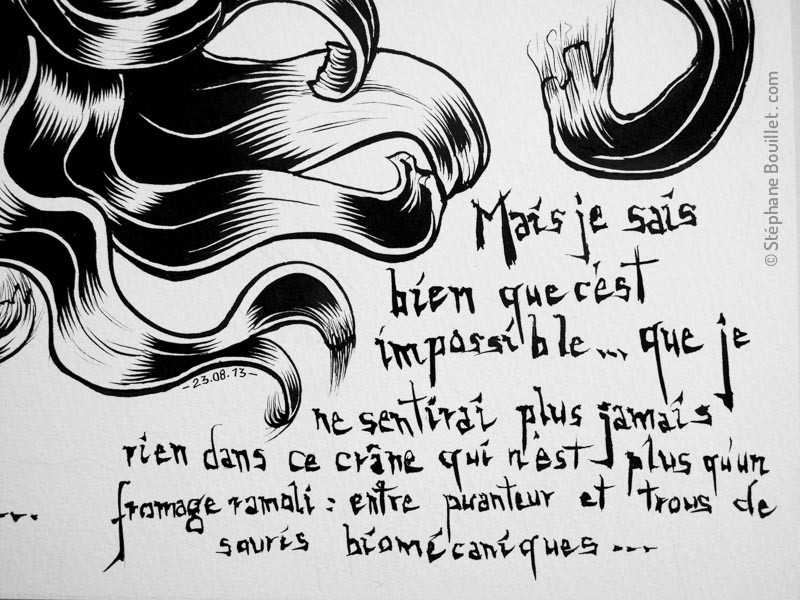 © Stéphane Bouillet.com
Mais je sais
bien que c'est
impossible... que je
-23.08.13-
ne sentirai plus jamais
rien dans ce crâne qui n'est plus qu'un
fromage ramoli : entre puanteur et trous de
souris biomécaniques...
...